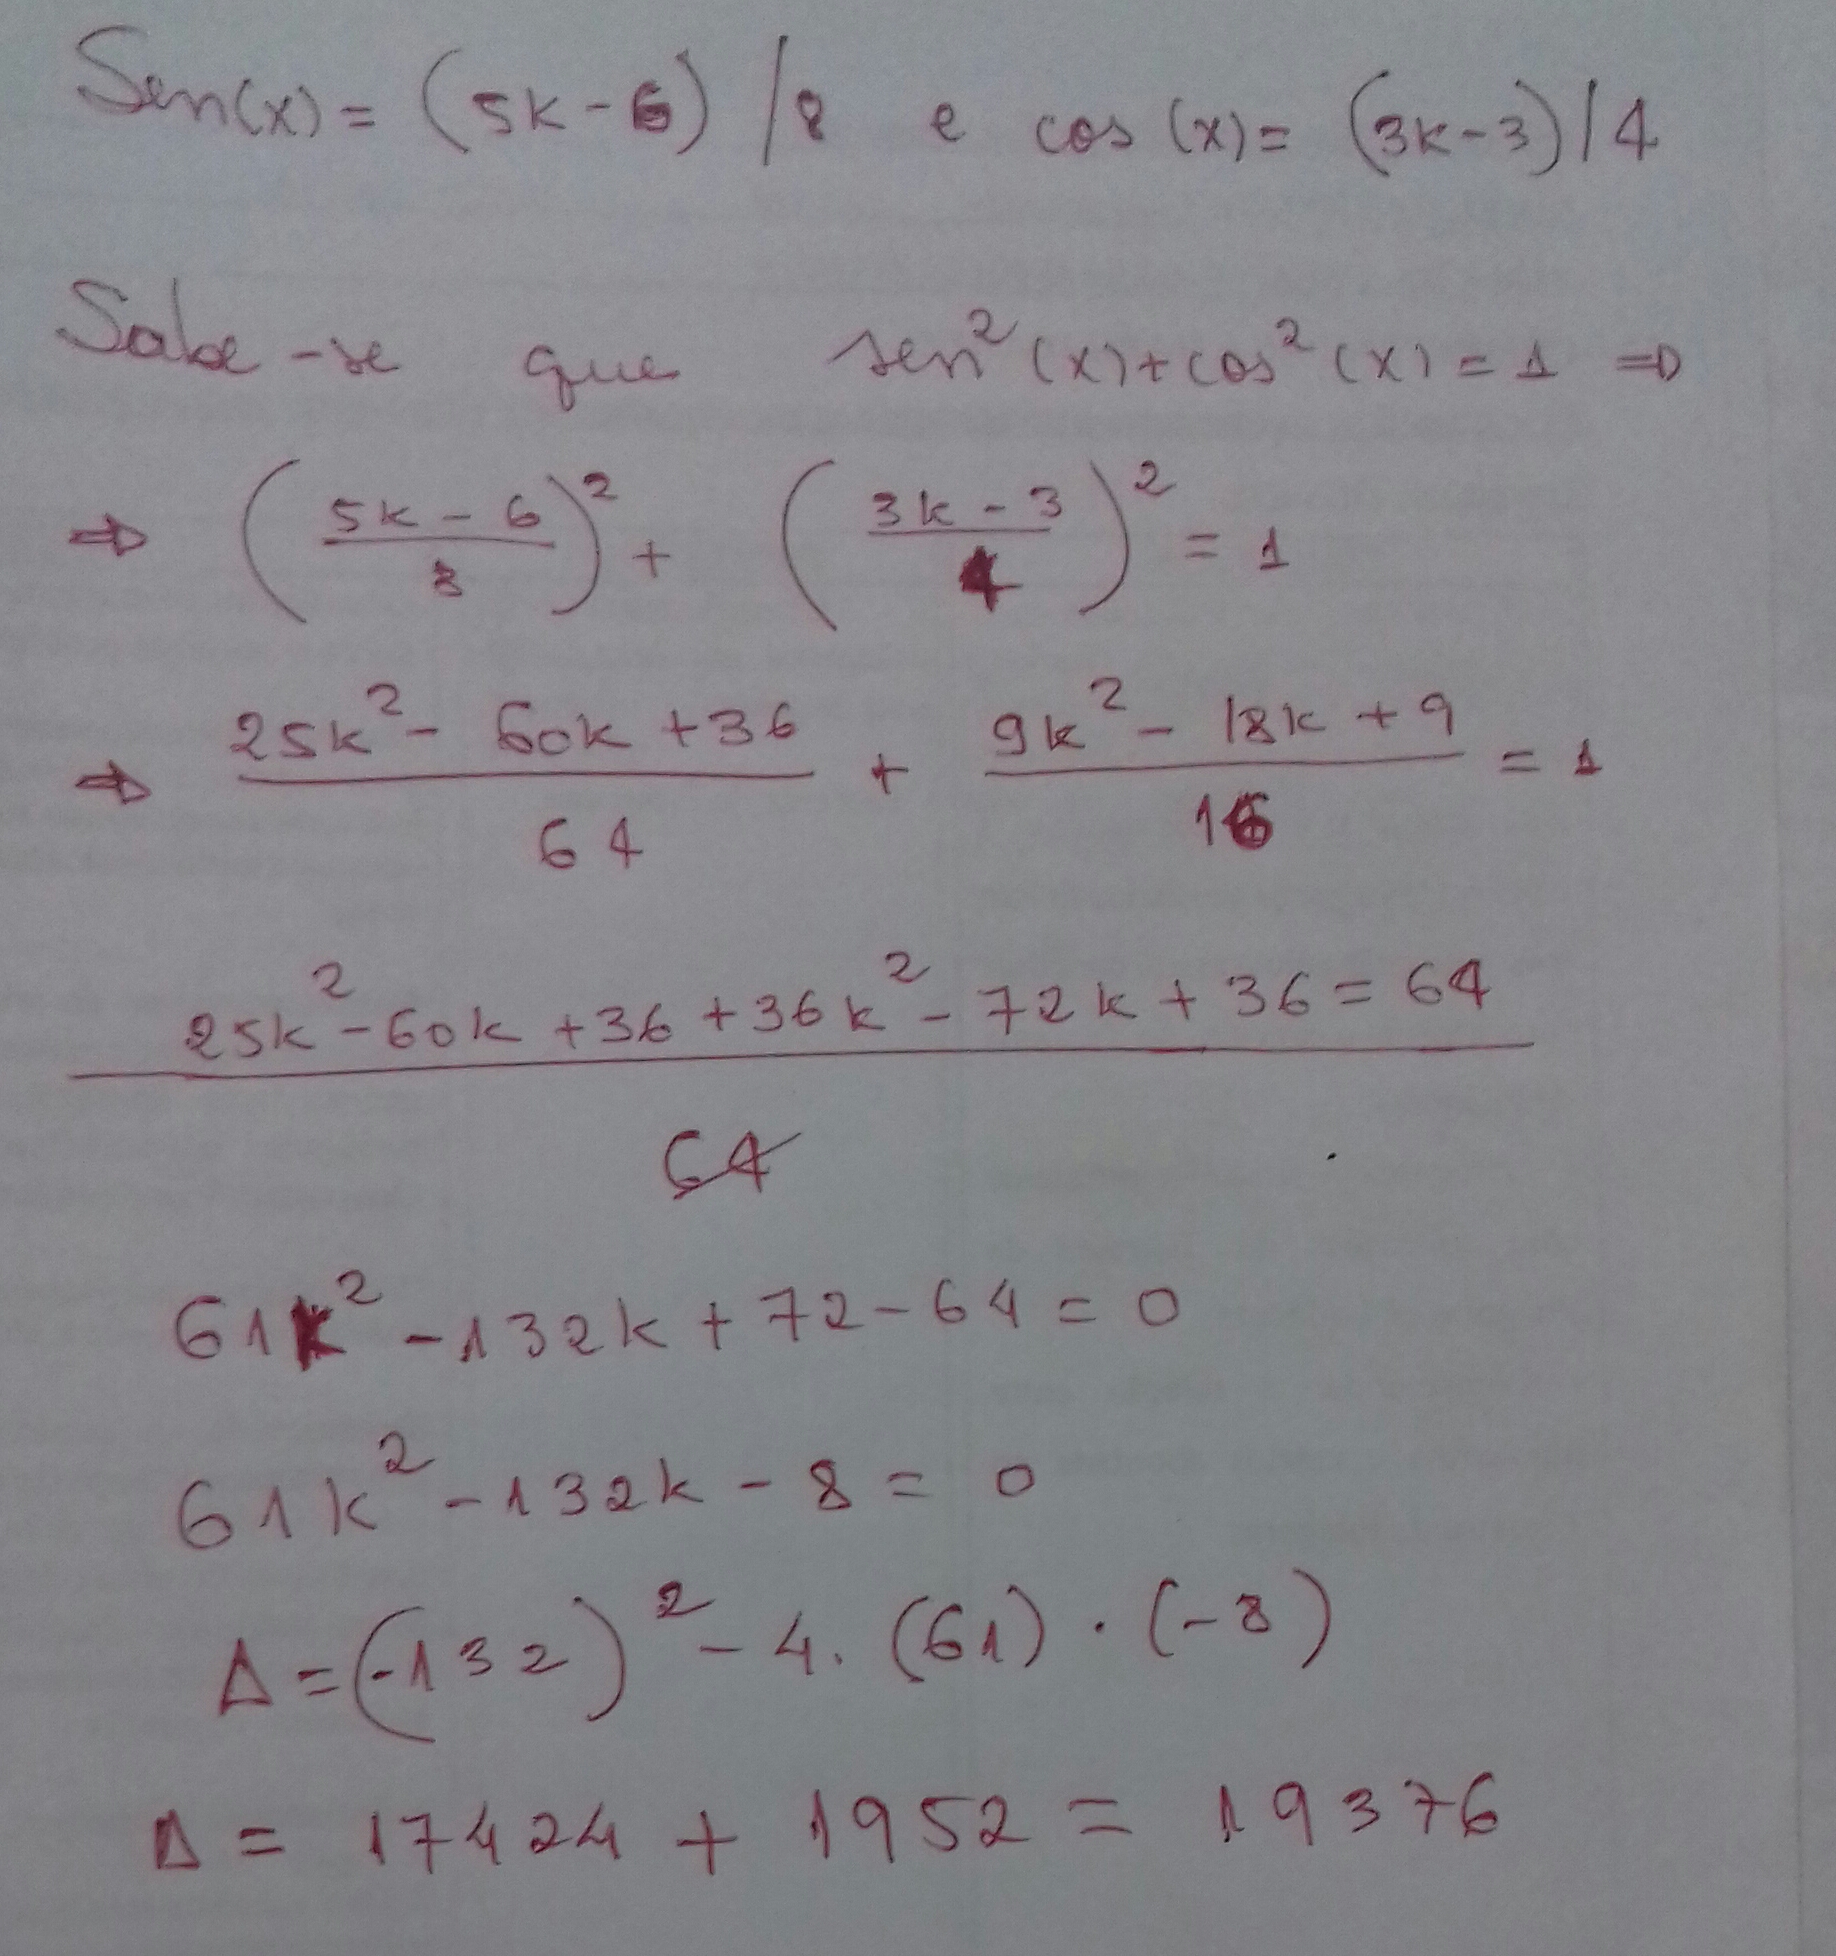 Sen(x) = (5k-6)/8 e cos(x) = (3k-3)/4
Sabe-se que sen²(x)+cos²(x) = 1 ⇒
⇒ ((5k-6)/8)² + ((3k-3)/4)² = 1
⇒ (25k² - 60k + 36)/64 + (9k² - 18k + 9)/16 = 1
25k² - 60k + 36 + 36k² - 72k + 36 = 64
64
61k² - 132k + 72 - 64 = 0
61k² - 132k - 8 = 0
Δ = (-132)² - 4. (61) . (-8)
Δ = 17424 + 1952 = 19376